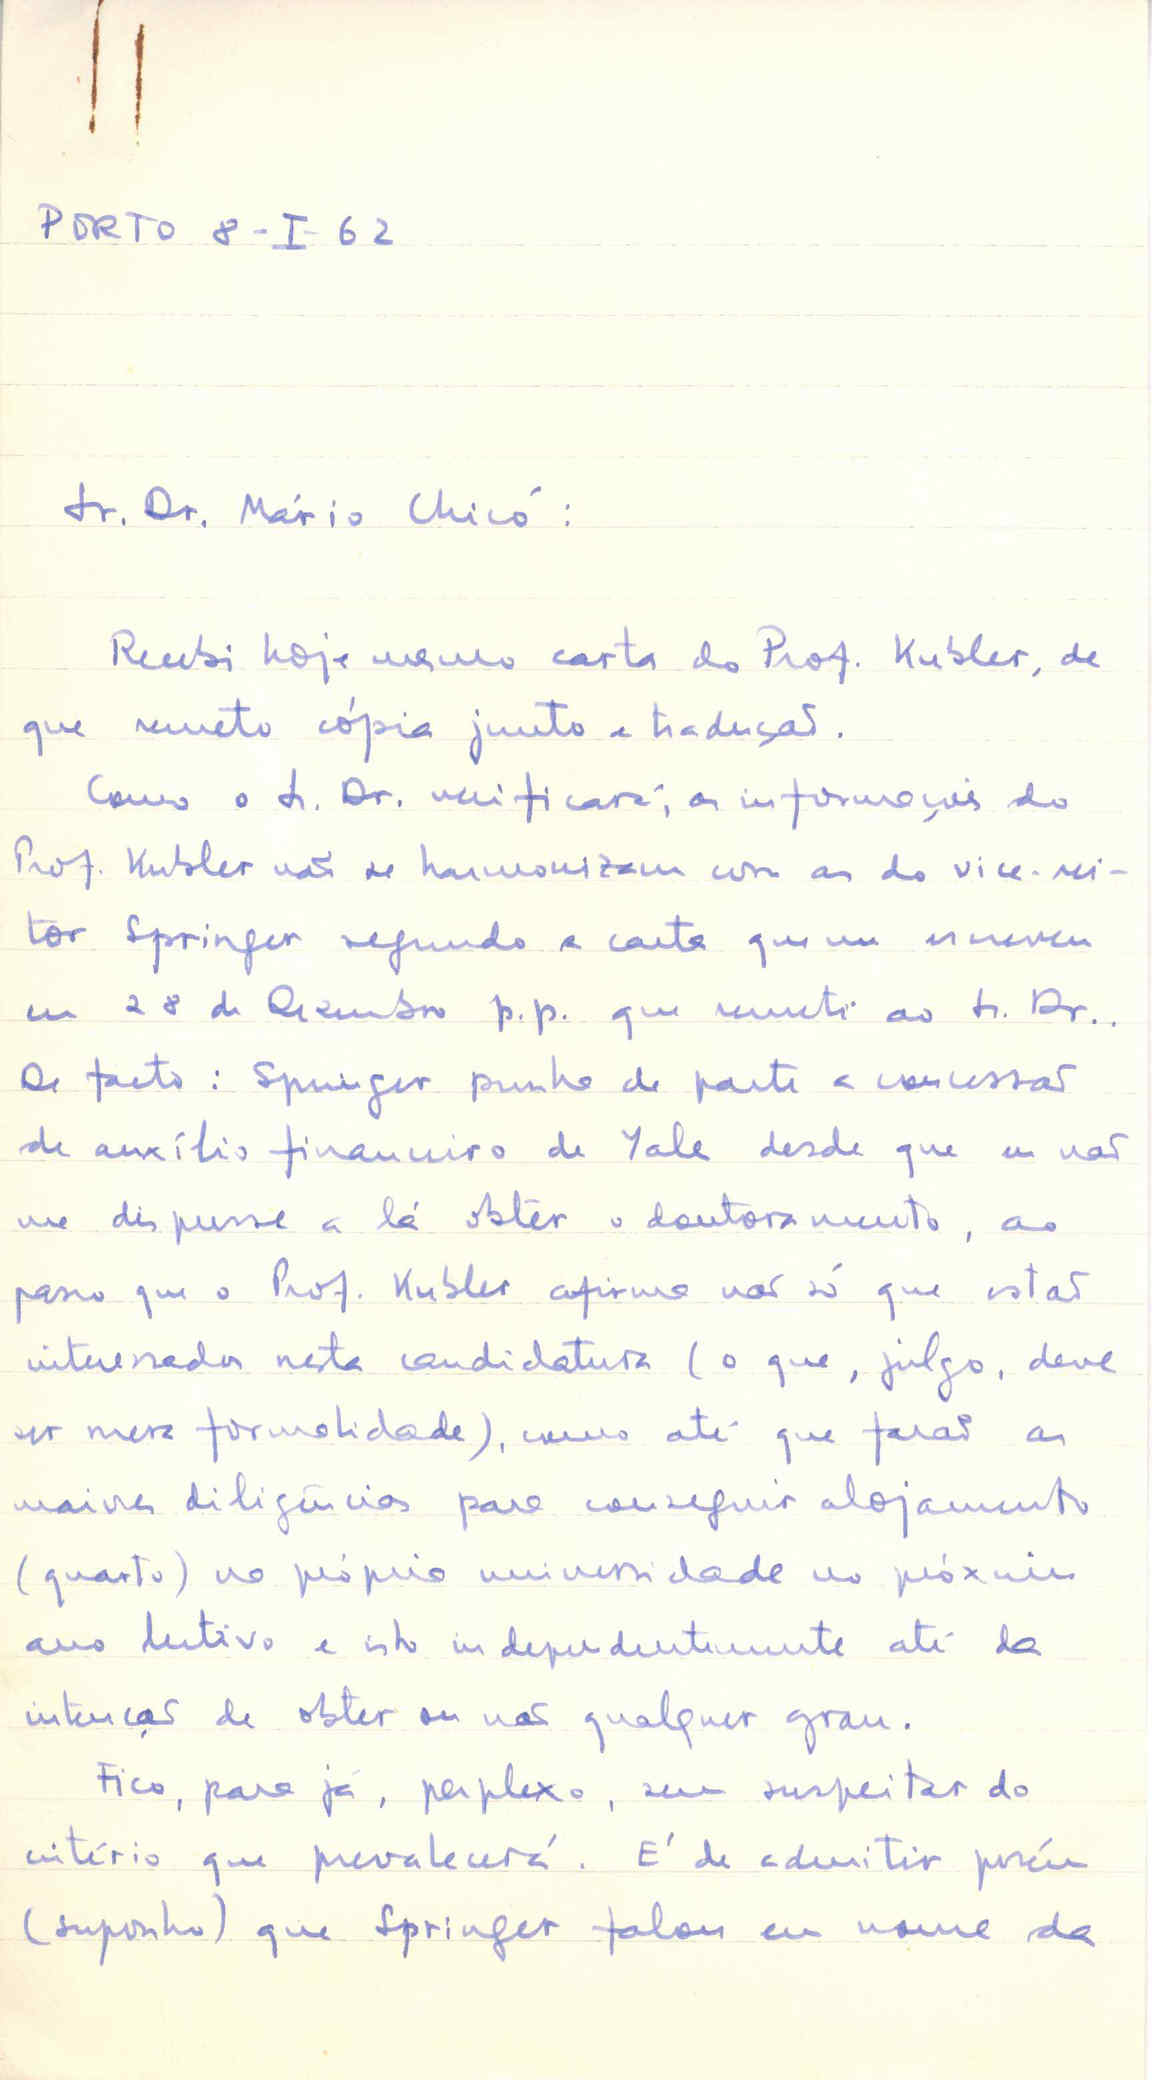 PORTO 8-I-62
Sr. Dr. Mário Chicó:
Recebi hoje mesmo carta do Prof. Kubler, de
que remeto cópia junto e tradução.
Como o Sr. Dr. verificará, as informações do
Prof. Kubler não se harmonizam com as do vice-rei-
tor Springer segundo a carta que me escreveu
em 28 de Dezembro p.p. que remeti ao Sr. Dr..
De facto: Springer punha de parte a concessão
de auxílio financeiro de Yale desde que eu não
me dispusse a lá obter o doutoramento, ao
passo que o Prof. Kubler afirma não só que estão
interessados nesta candidatura (o que, julgo, deve
ser mera formalidade), como até que farão as
maiores diligências para conseguir alojamento
(quarto) na própria universidade no próximo
ano lectivo e isto independentemente até da
intenção de obter ou não qualquer grau.
Fico, para já, perplexo, sem suspeitar do
critério que prevalecerá. É de admitir porém
(suponho) que Springer falou em nome da